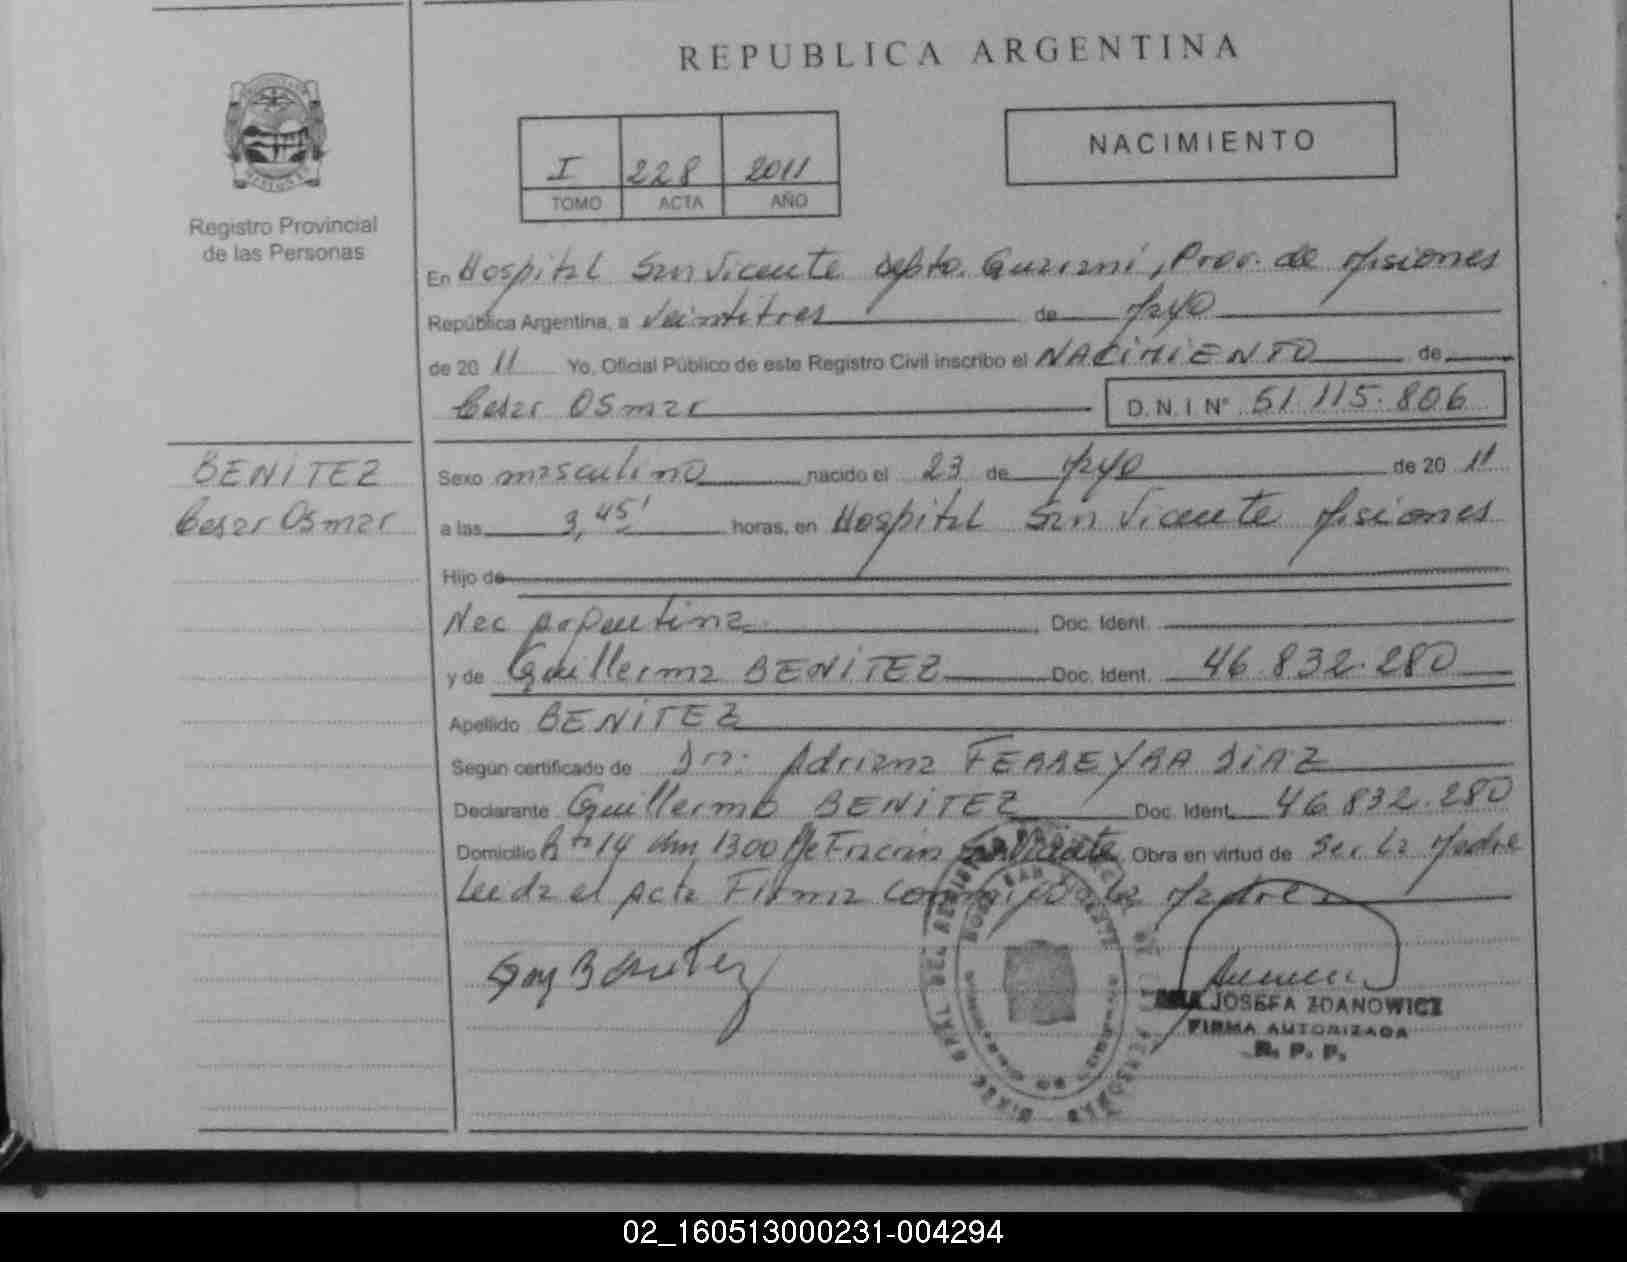 REPUBLICA ARGENTINA
NACIMIENTO
I 228 2011
TOMO ACTA AÑO
Registro Provincial
de las Personas
En Hospital San Vicente Depto. Guarani, Prov. de Misiones
República Argentina, a Veintitres de Mayo
de 20 11 Yo, Oficial Público de este Registro Civil inscribo el NACIMIENTO de
Cesar Osmar D.N.I Nº 51.115.806
BENITEZ
Cesar Osmar
Sexo masculino nacido el 23 de Mayo de 20 11
a las 3,45' horas, en Hospital San Vicente Misiones
Hijo de
Nac Argentina Doc. Ident.
y de Guillerma BENITEZ Doc. Ident. 46.832.280
Apellido BENITEZ
Según certificado de Dra: Adriana FERREYRA DIAZ
Declarante Guillerma BENITEZ Doc. Ident. 46.832.280
Domicilio 14 Km 1300 San Vicente Obra en virtud de Ser La Madre
Leida el Acta Firma Conmigo La Madre
Benitez
JOSEFA ZDANOWICZ
FIRMA AUTORIZADA
R. P. P.
02_160513000231-004294